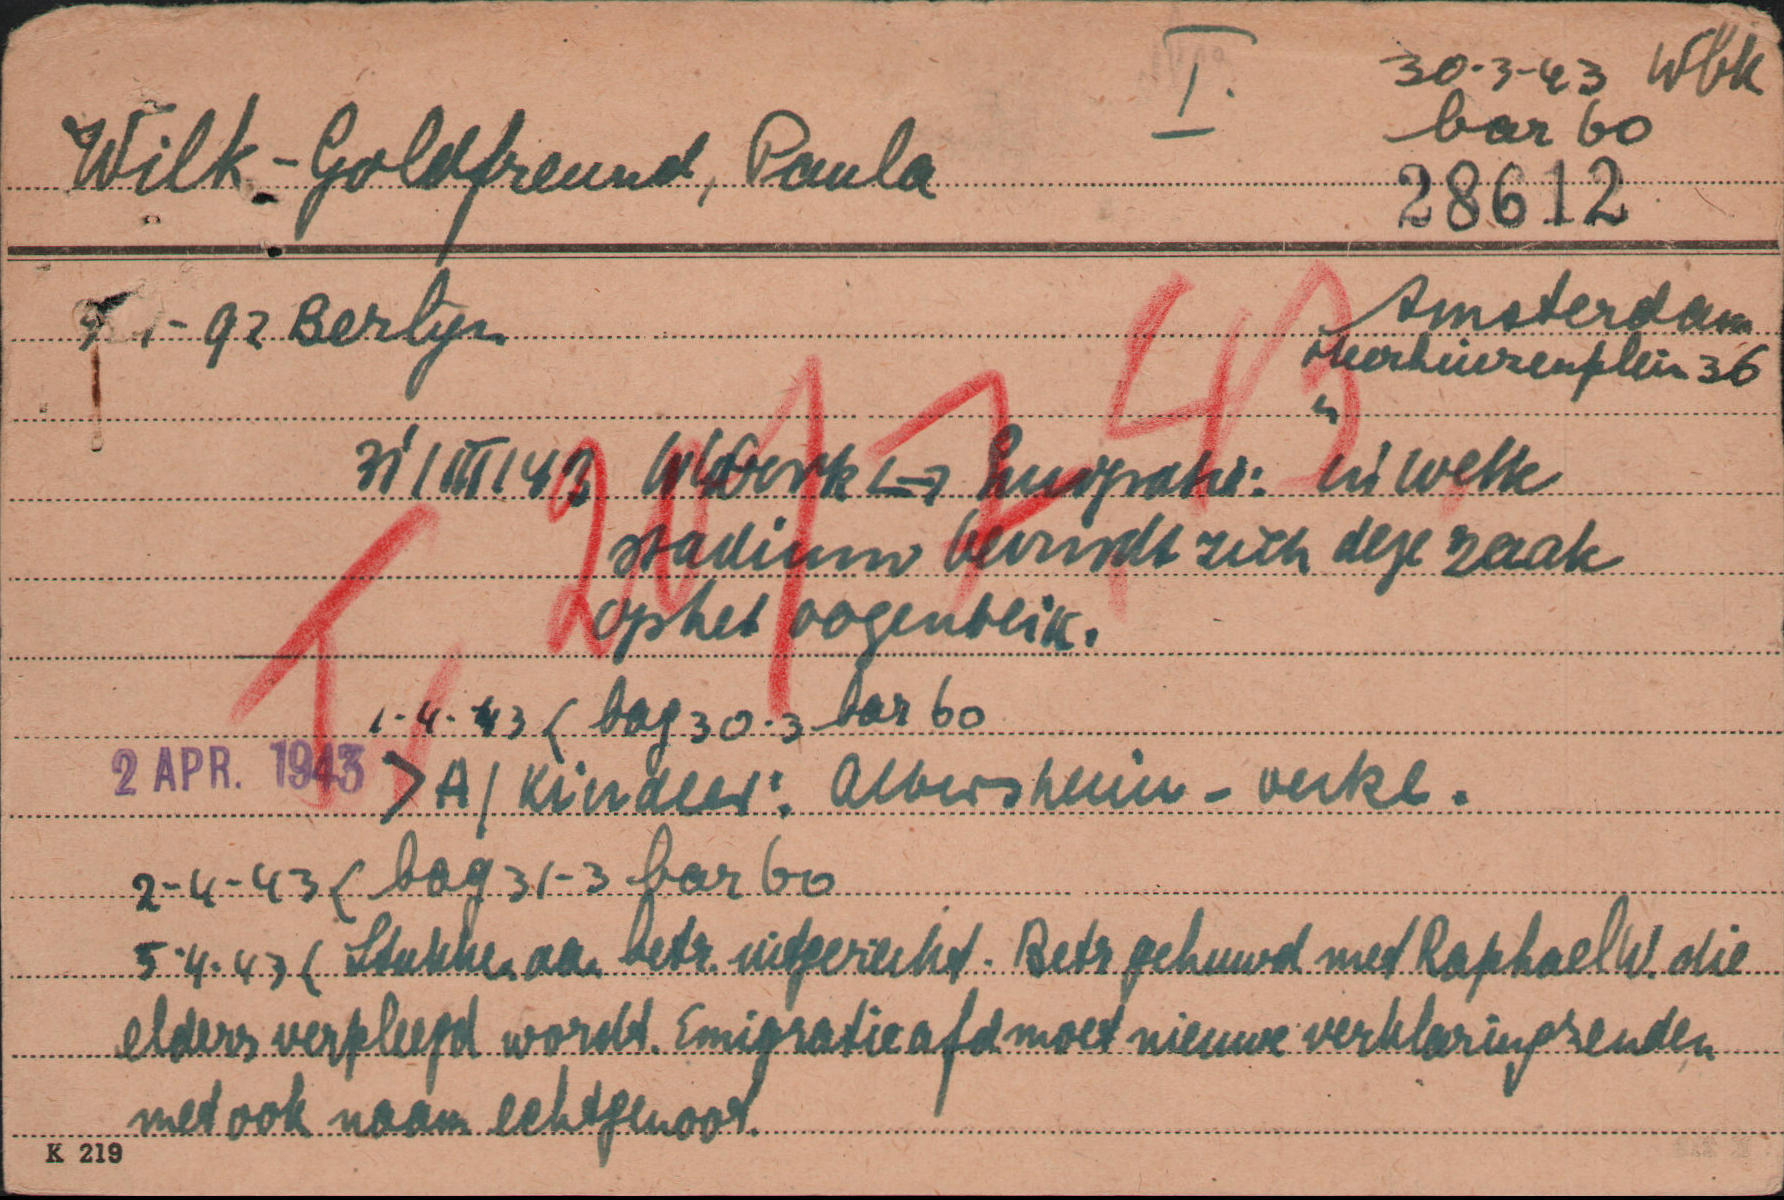 I.
30-3-43 Wbk
bar 60
28612
Wilk-Goldfreund, Paula
1-92 Berlyn
Amsterdam
Merhuizenplein 36
T, 20/7-43
31/III/43 Wbork Emigratie: in welk
stadium bevindt zich deze zaak
op het oogenblik.
1-4-43 ( bag 30-3 bar 60
2 APR. 1943 > A/ Kinder: Albersheim-verkl.
2-4-43 ( bag 31-3 bar 60
5-4-43 ( Stukken aan betr. uitgereikt. Betr gehuwd met Raphael W. die
elders verpleegd wordt. Emigratie afd moet nieuwe verklaring zenden
met ook naam echtgenoot.
K 219